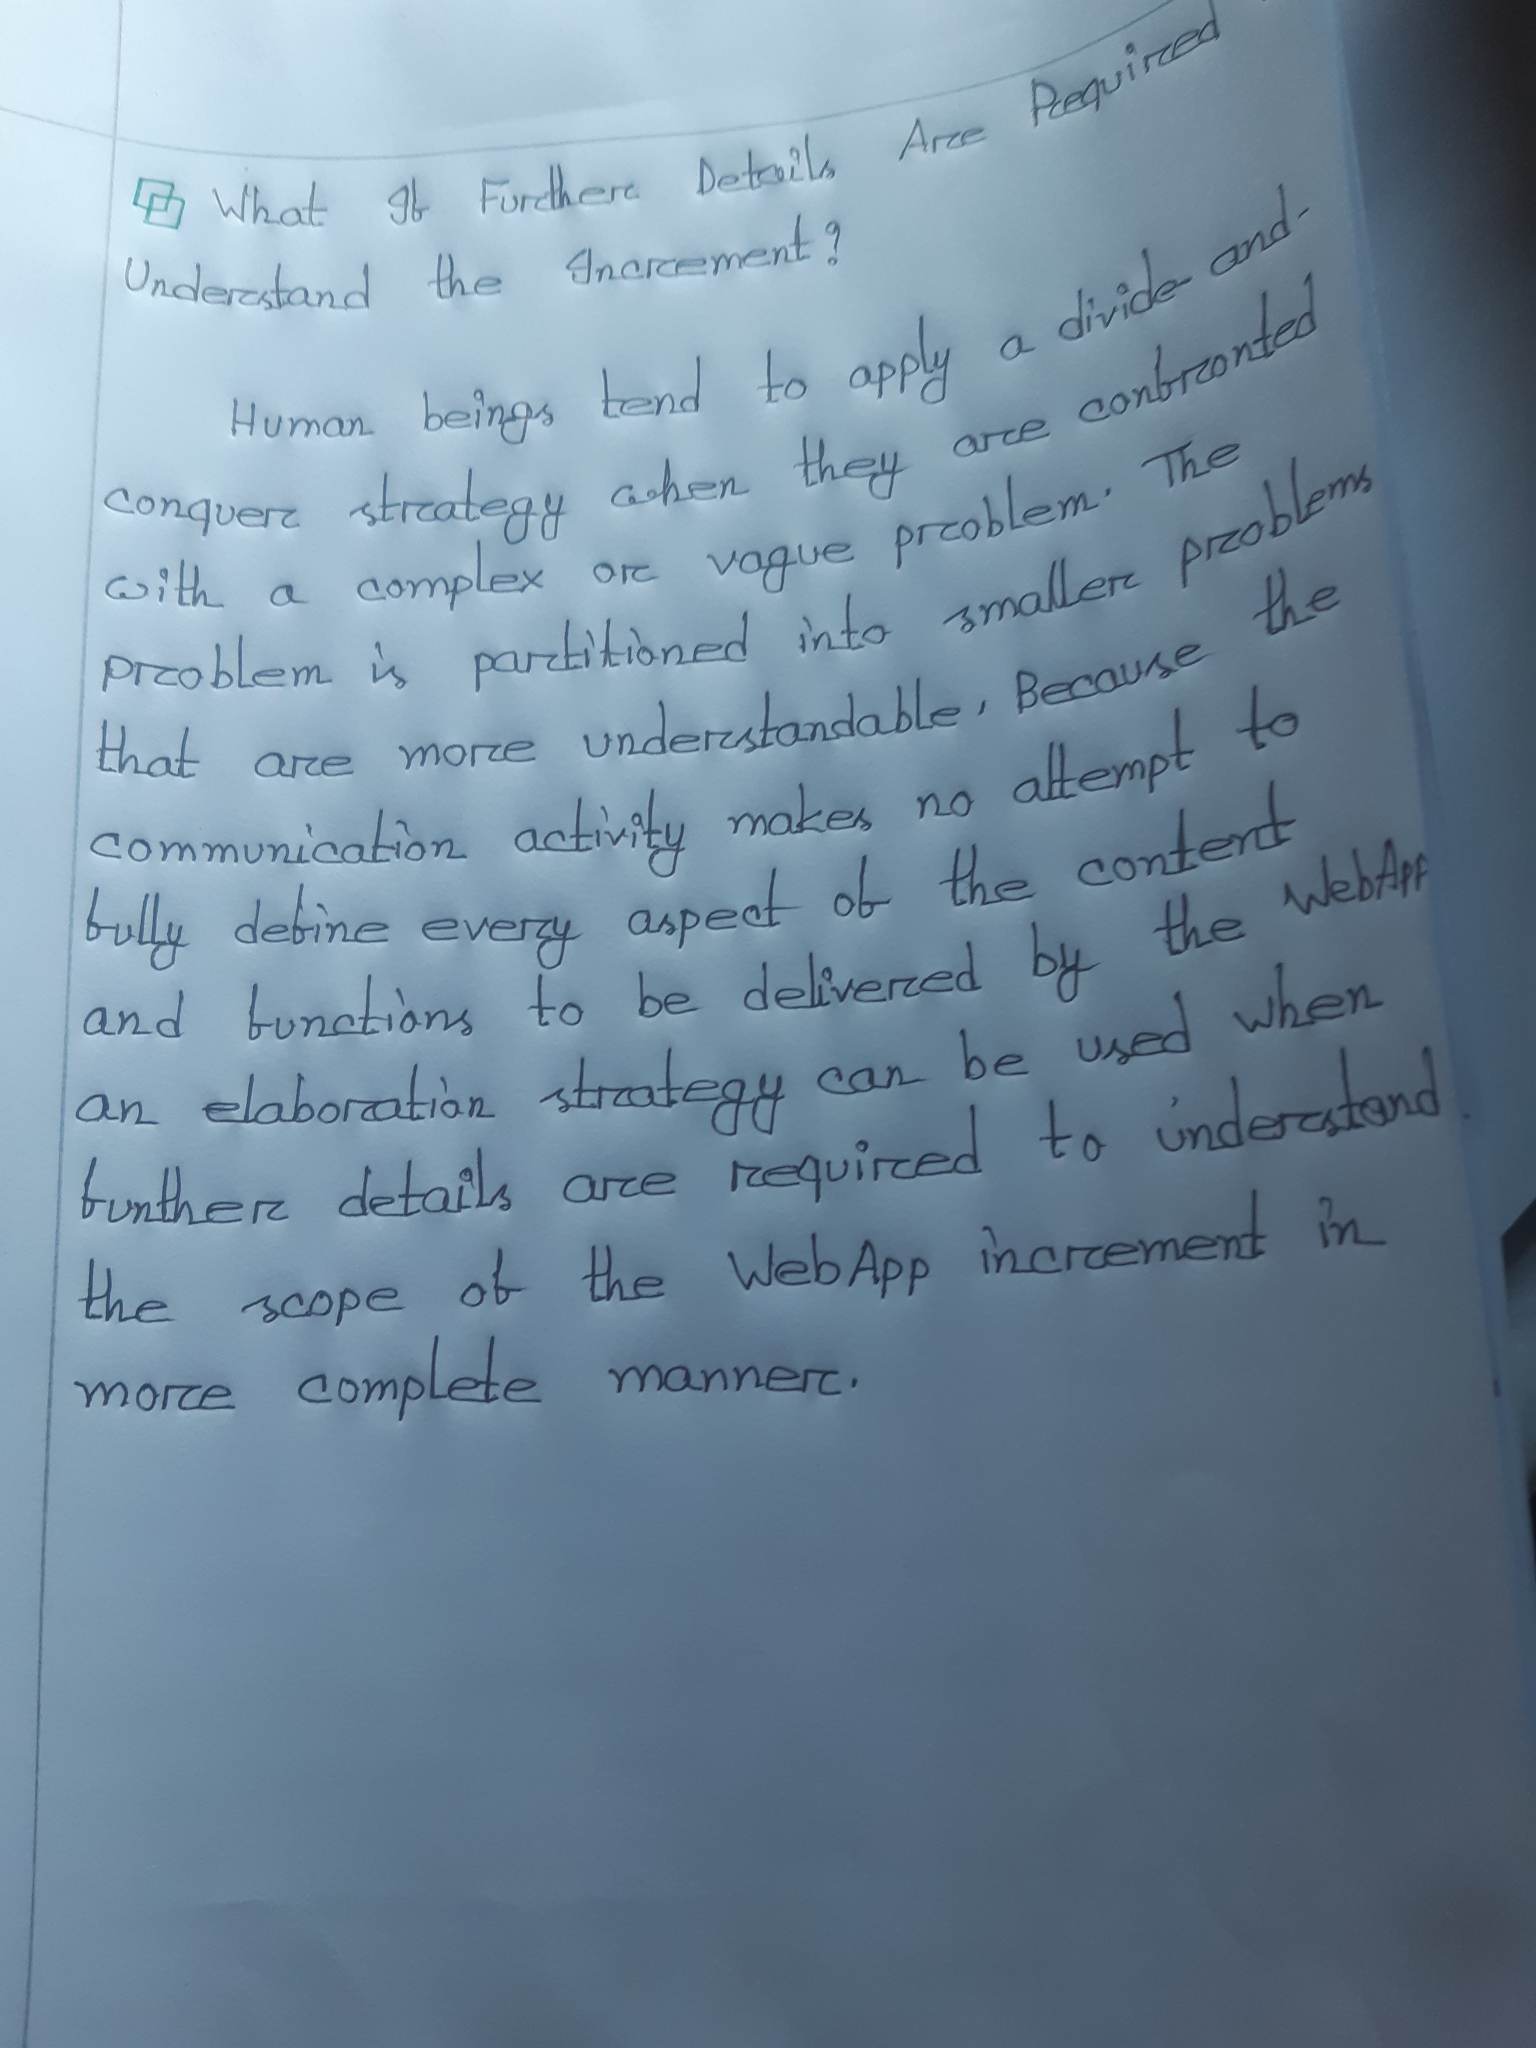 What If Further Details Are Required
Understand the Increment?
Human beings tend to apply a divide-and-
conquer strategy when they are confronted
with a complex or vague problem. The
problem is partitioned into smaller problems
that are more understandable. Because the
communication activity makes no attempt to
fully define every aspect of the content
and functions to be delivered by the WebApp
an elaboration strategy can be used when
further details are required to understand
the scope of the WebApp increment in
more complete manner.